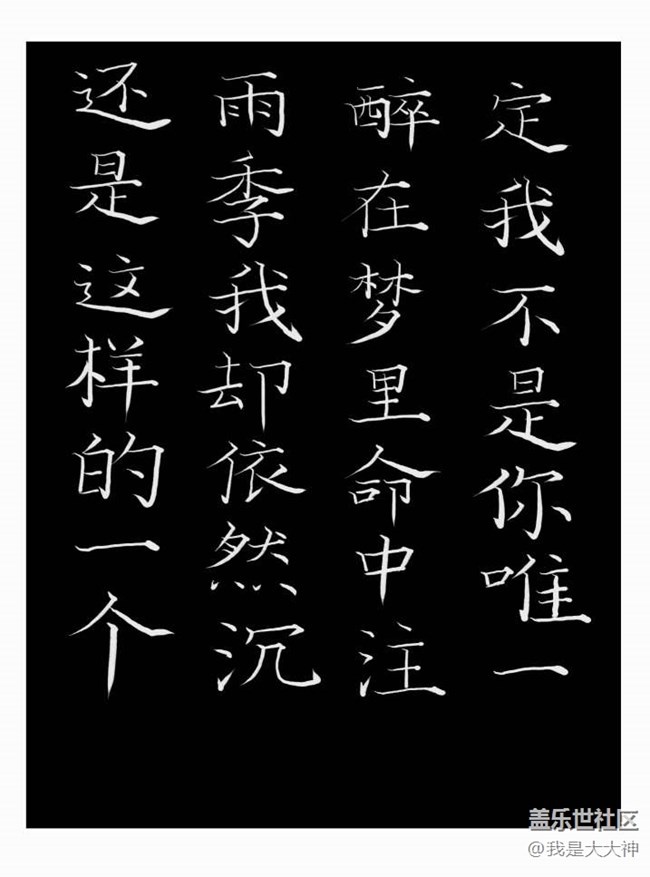 还是这样的一个
雨季我却依然沉
醉在梦里命中注
定我不是你唯一
盖乐世社区
@我是大大神